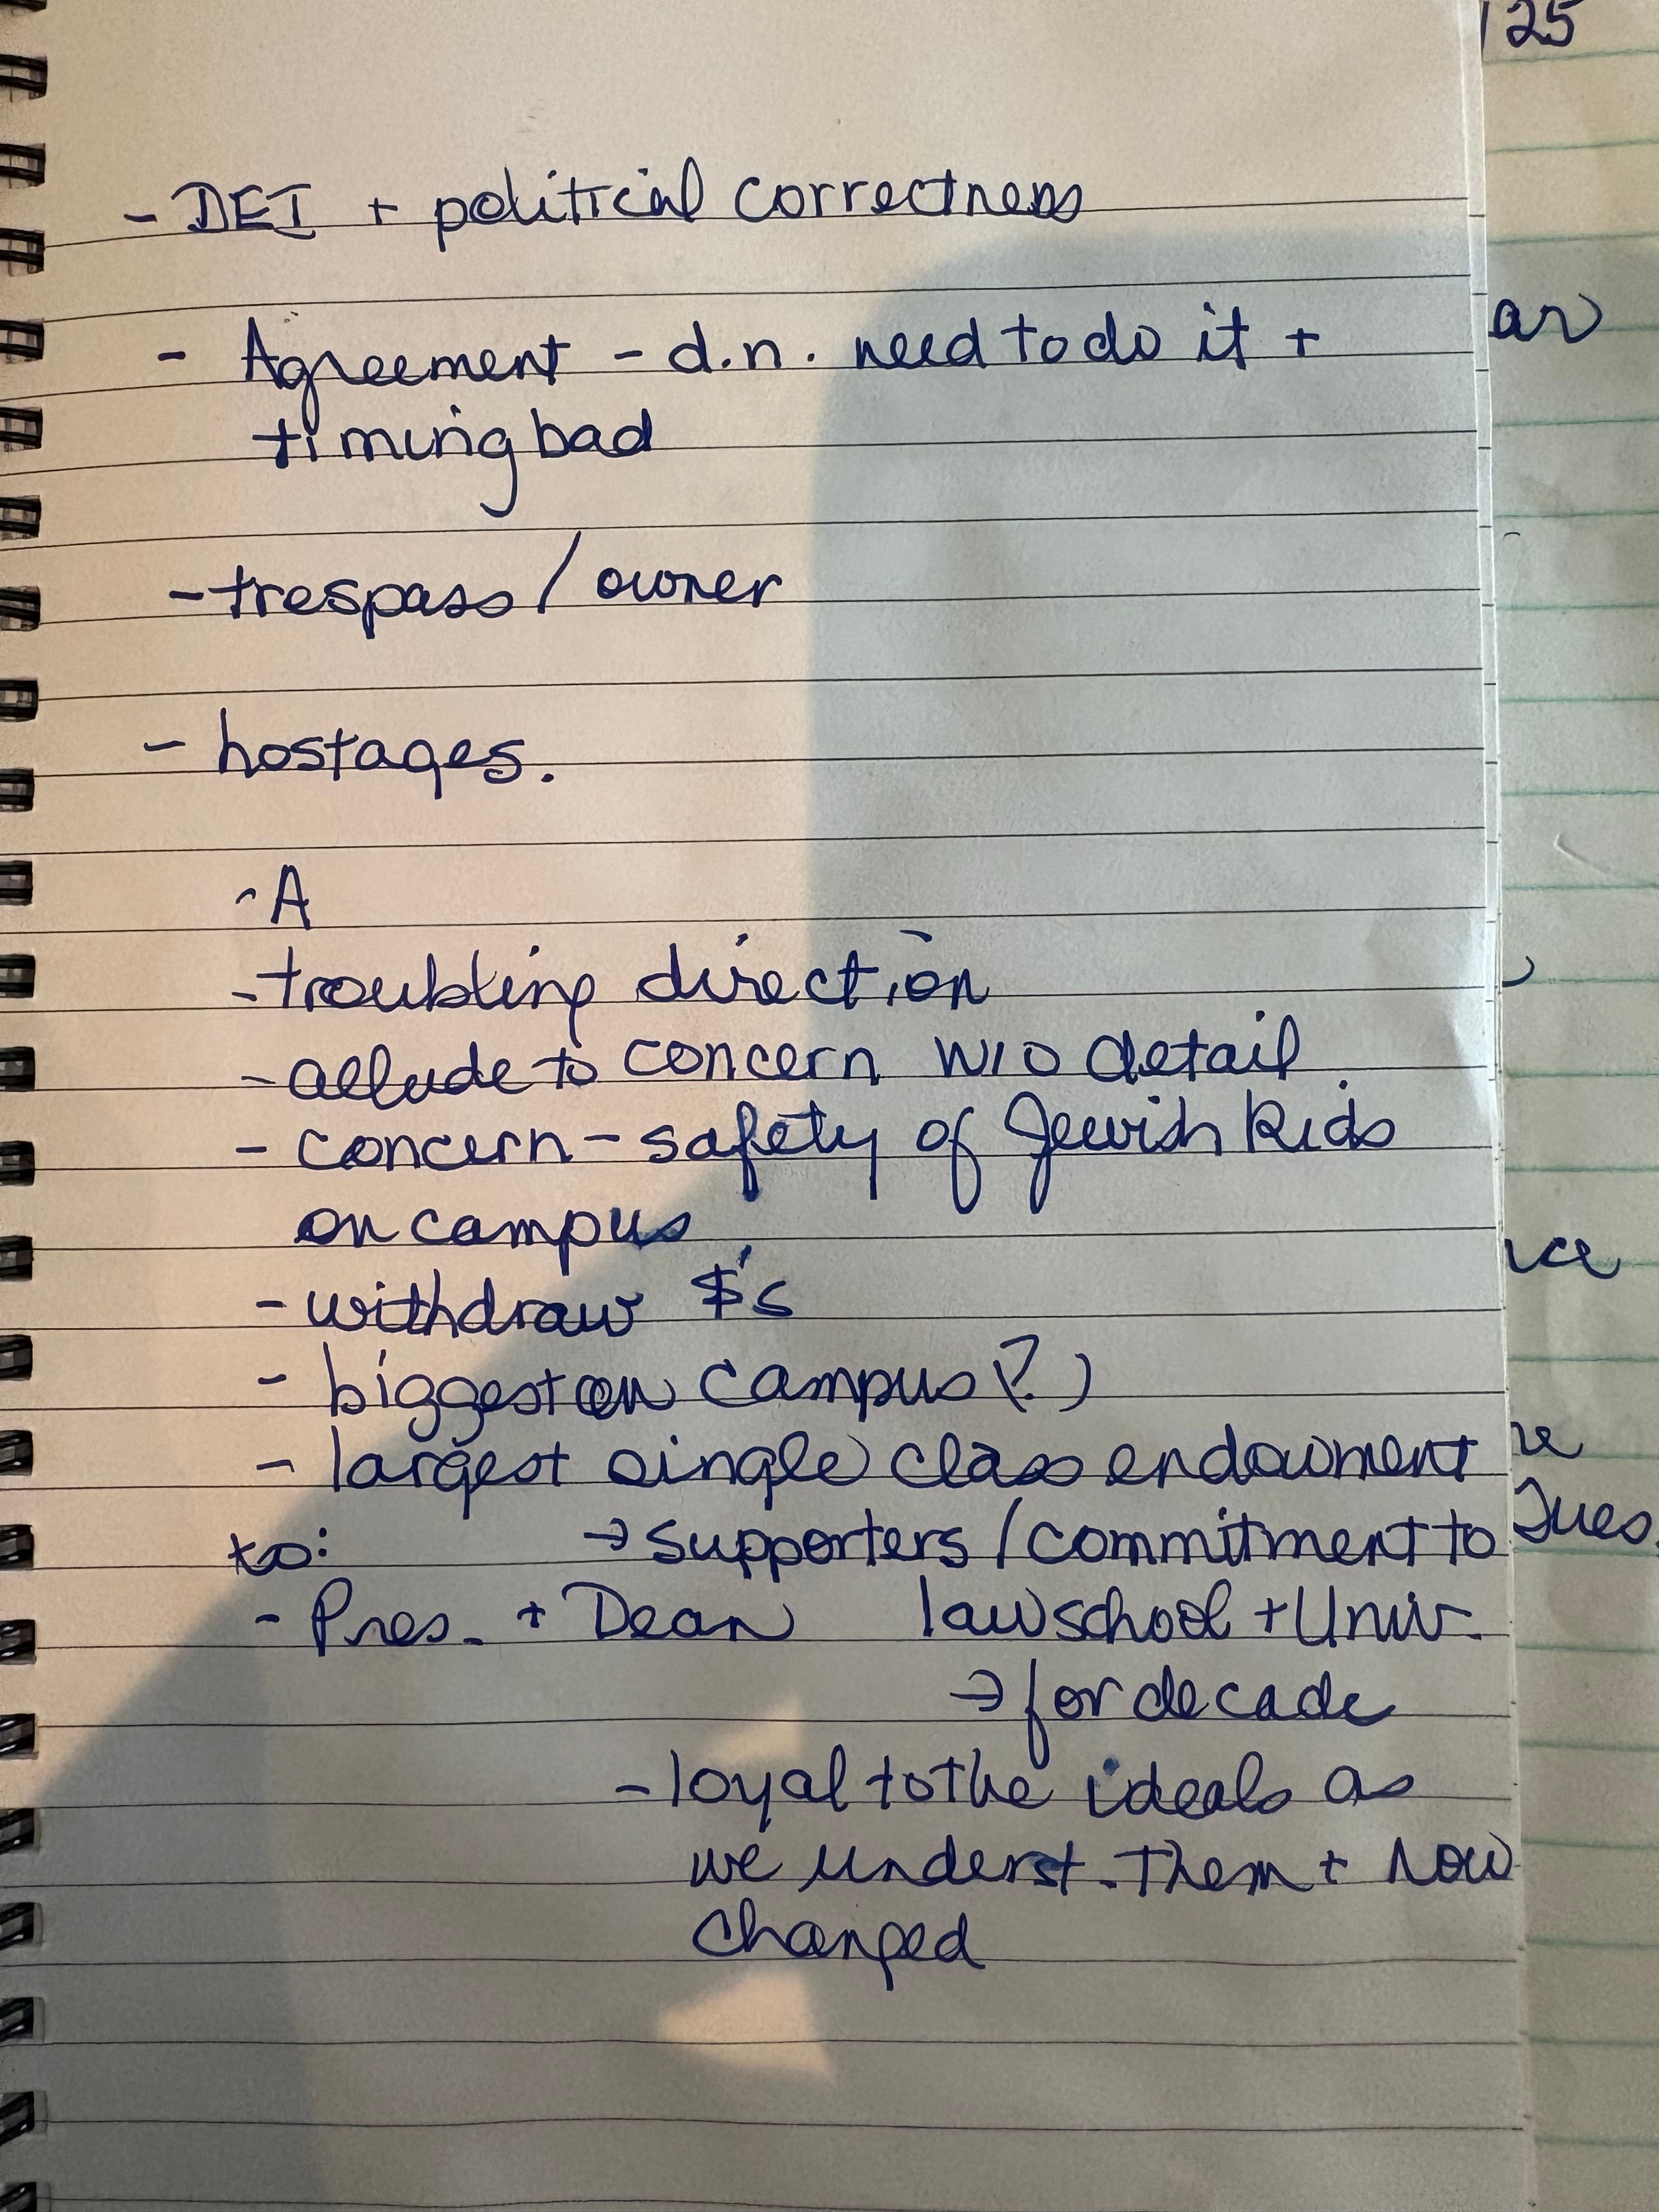 125
- DEI + political correctness
- Agreement - d.n. need to do it +
timing bad
- trespass / owner
- hostages.
- A
- troubling direction
- allude to concern w/o detail
- concern - safety of Jewish kids
on campus
- withdraw $'s
- biggest on campus (?)
- largest single class endowment
to: → supporters / commitment to
- Pres. + Dean law school + Univ.
→ for decade
- loyal to the ideals as
we underst. them + how
changed
ar
Tues.